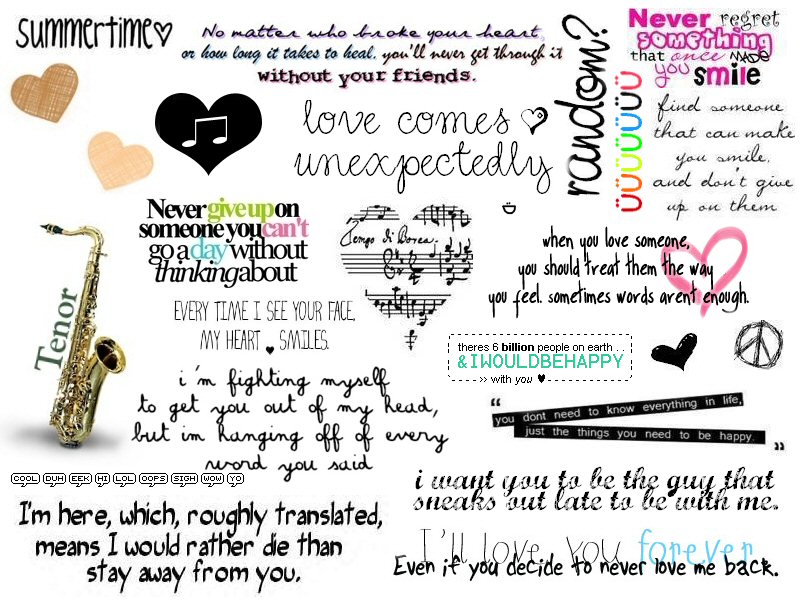 summertime
No matter who broke your heart,
or how long it takes to heal, you'll never get through it
without your friends.
random?
Never regret
something
that once MADE
you smile
find someone
that can make
you smile,
and don't give
up on them
love comes
unexpectedly
üüüüüüü
Never give up on
someone you can't
go a day without
thinking about
Tempo di Borea.
when you love someone,
you should treat them the way
you feel. sometimes words arent enough.
Tenor
EVERY TIME I SEE YOUR FACE,
MY HEART SMILES.
theres 6 billion people on earth . .
& I WOULD BE HAPPY
>> with you ♥
i'm fighting myself
to get you out of my head,
but im hanging off of every
word you said
“
you dont need to know everything in life,
just the things you need to be happy.
”
COOL DUH EEK HI LOL OOPS SIGH WOW YO
i want you to be the guy that
sneaks out late to be with me.
I'm here, which, roughly translated,
means I would rather die than
stay away from you.
I'll love you forever
Even if you decide to never love me back.